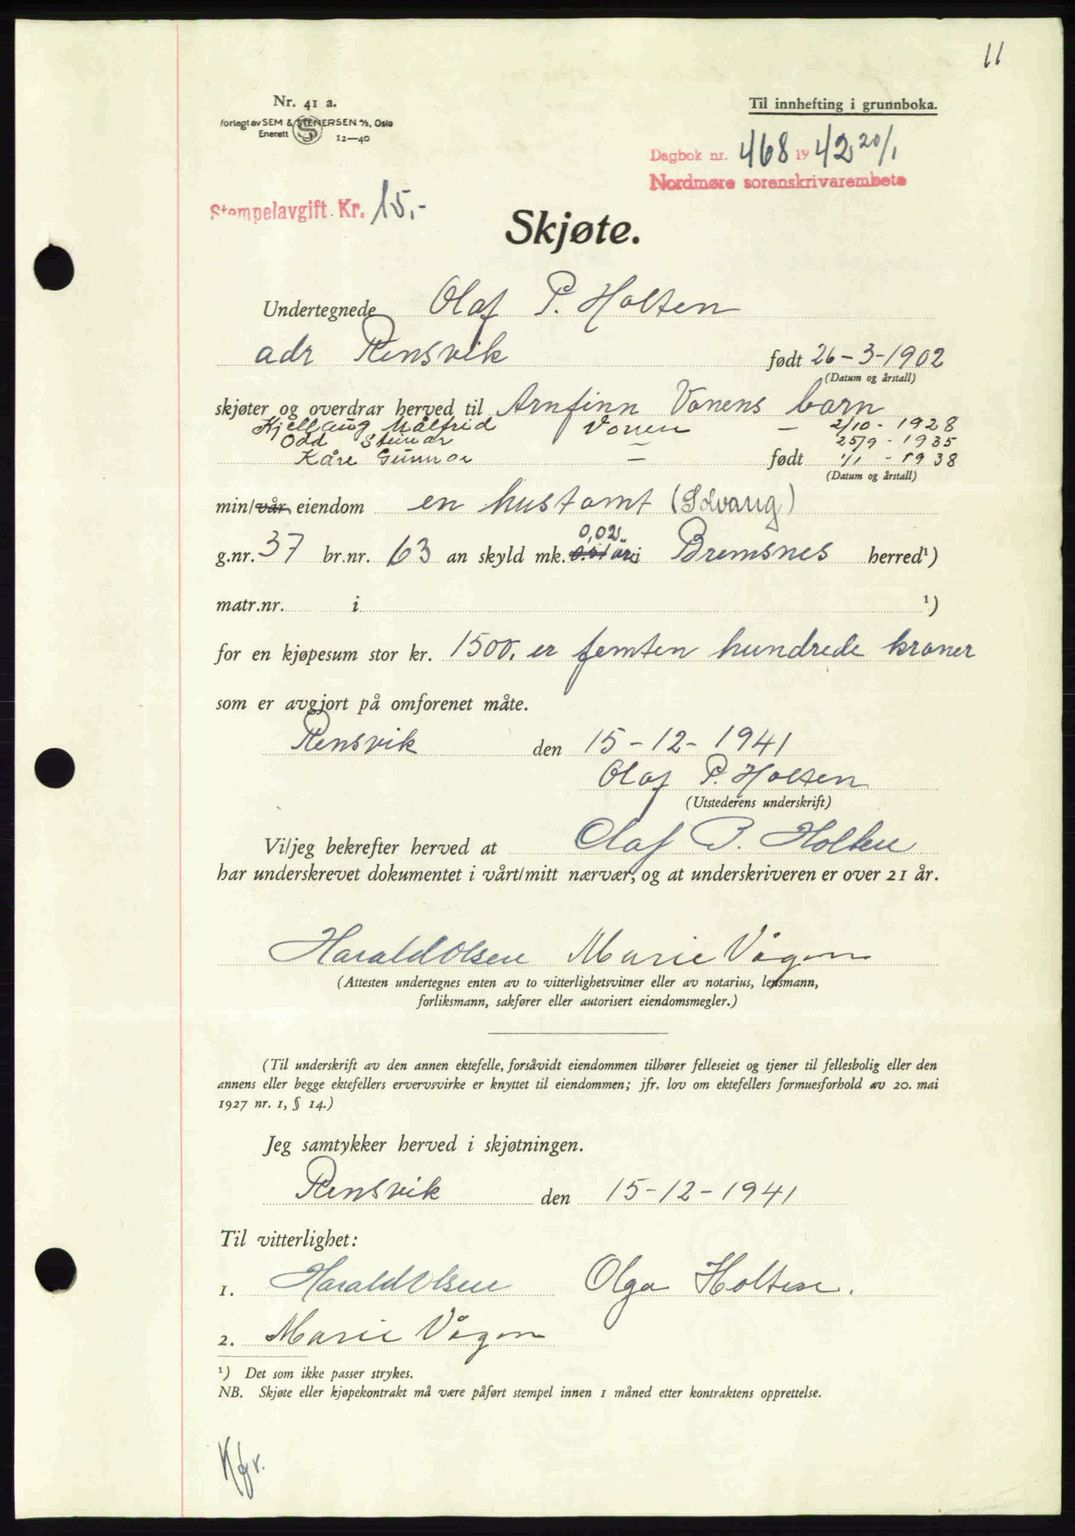 11
Nr. 41 a.
Til innhefting i grunnboka.
forlagt av SEM & STENERSEN A/S, Oslo
Enerett 12—40
Dagbok nr. 468 1942 20/1
Nordmøre sorenskrivarembete
Stempelavgift Kr. 15.-
Skjøte.
Undertegnede Olaf P. Holten
adr Rensvik født 26-3-1902
(Datum og årstall)
skjøter og overdrar herved til Arnfinn Vonens barn
Kjellaug Målfrid Vonen — 2/10 - 1928
Odd Steinar 25/9 - 1935
Kåre Gunnar — født 1/1 - 1938
(Datum og årstall)
min/vår eiendom en hustomt (Solvang)
0,02
g.nr. 37 br.nr. 63 an skyld mk. i Bremsnes herred¹)
matr.nr. i ¹)
for en kjøpesum stor kr. 1500, er femten hundrede kroner
som er avgjort på omforenet måte.
Rensvik den 15-12-1941
Olaf P. Holten
(Utstederens underskrift)
Vi/jeg bekrefter herved at Olaf P. Holten
har underskrevet dokumentet i vårt/mitt nærvær, og at underskriveren er over 21 år.
Harald Olsen Marie Vågen
(Attesten undertegnes enten av to vitterlighetsvitner eller av notarius, lensmann,
forliksmann, sakfører eller autorisert eiendomsmegler.)
(Til underskrift av den annen ektefelle, forsåvidt eiendommen tilhører felleseiet og tjener til fellesbolig eller den
annens eller begge ektefellers ervervsvirke er knyttet til eiendommen; jfr. lov om ektefellers formuesforhold av 20. mai
1927 nr. 1, § 14.)
Jeg samtykker herved i skjøtningen.
Rensvik den 15-12-1941
Til vitterlighet:
1. Harald Olsen Olga Holten.
2. Marie Vågen
¹) Det som ikke passer strykes.
NB. Skjøte eller kjøpekontrakt må være påført stempel innen 1 måned etter kontraktens opprettelse.
Kfr.